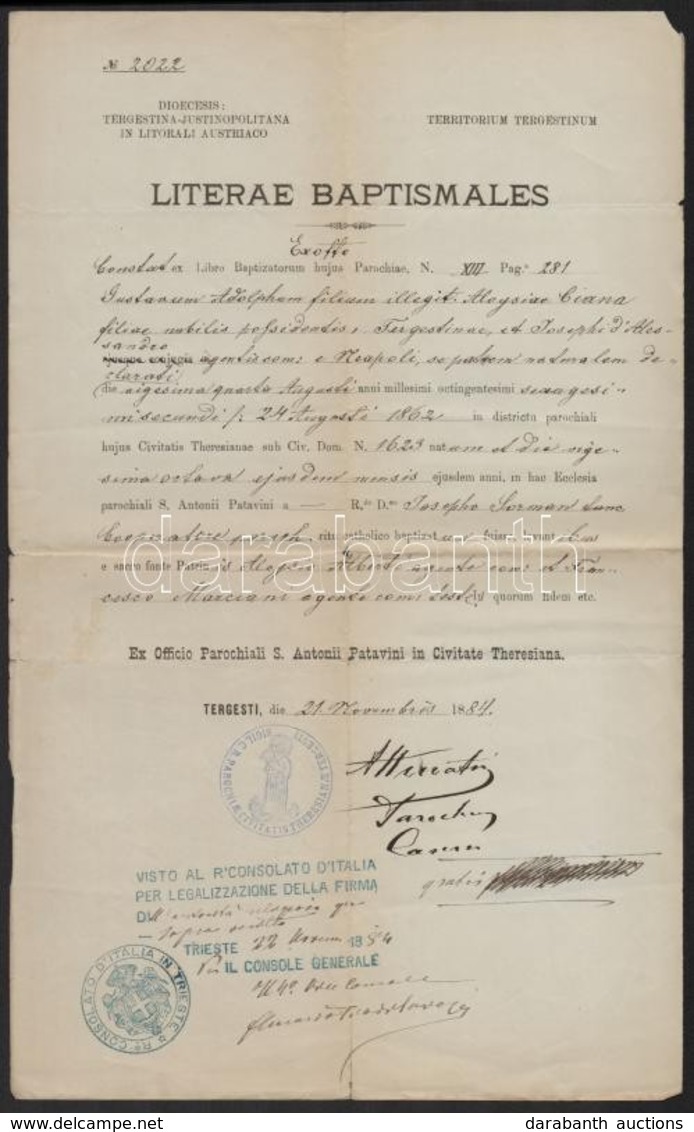 № 2022
DIOECESIS:
TERGESTINA-JUSTINOPOLITANA
IN LITORALI AUSTRIACO
TERRITORIUM TERGESTINUM
LITERAE BAPTISMALES
Exoffo
Constat ex Libro Baptizatorum hujus Parochiae, N. XIII Pag.ª 281
Gustavum Adolphum filium illegit. Aloysiae Ciana
filiae nobilis possidentis, Tergestinae, et Josephi d'Ales-
sandro
ejusque conjugis agentis com: e Neapoli, se patrem naturalem de-
clarati
die vigesima quarta Augusti anni millesimi octingentesimi sexagesi-
mi secundi /: 24 Augusti 1862 in districtu parochiali
hujus Civitatis Theresianae sub Civ. Dom. N. 1623 natum et die vige-
sima octava ejusdem mensis ejusdem anni, in hac Ecclesia
parochiali S. Antonii Patavini a — R.do D.no Josepho Surman tunc
Cooperatore paroch. ritu catholico baptizatum fuisse, levantibus
e sacro fonte Patrinis Aloysio Alberti agente com: et Fran-
cesco Marciani agente com: test: In quorum fidem etc.
Ex Officio Parochiali S. Antonii Patavini in Civitate Theresiana.
TERGESTI, die 21 Novembris 1884.
Parochus
gratis
VISTO AL R° CONSOLATO D'ITALIA
PER LEGALIZZAZIONE DELLA FIRMA
DI
sopra
TRIESTE 22 1884
IL CONSOLE GENERALE
R° CONSOLATO D'ITALIA IN TRIESTE
darabanth
darabanth.com
darabanth auctions